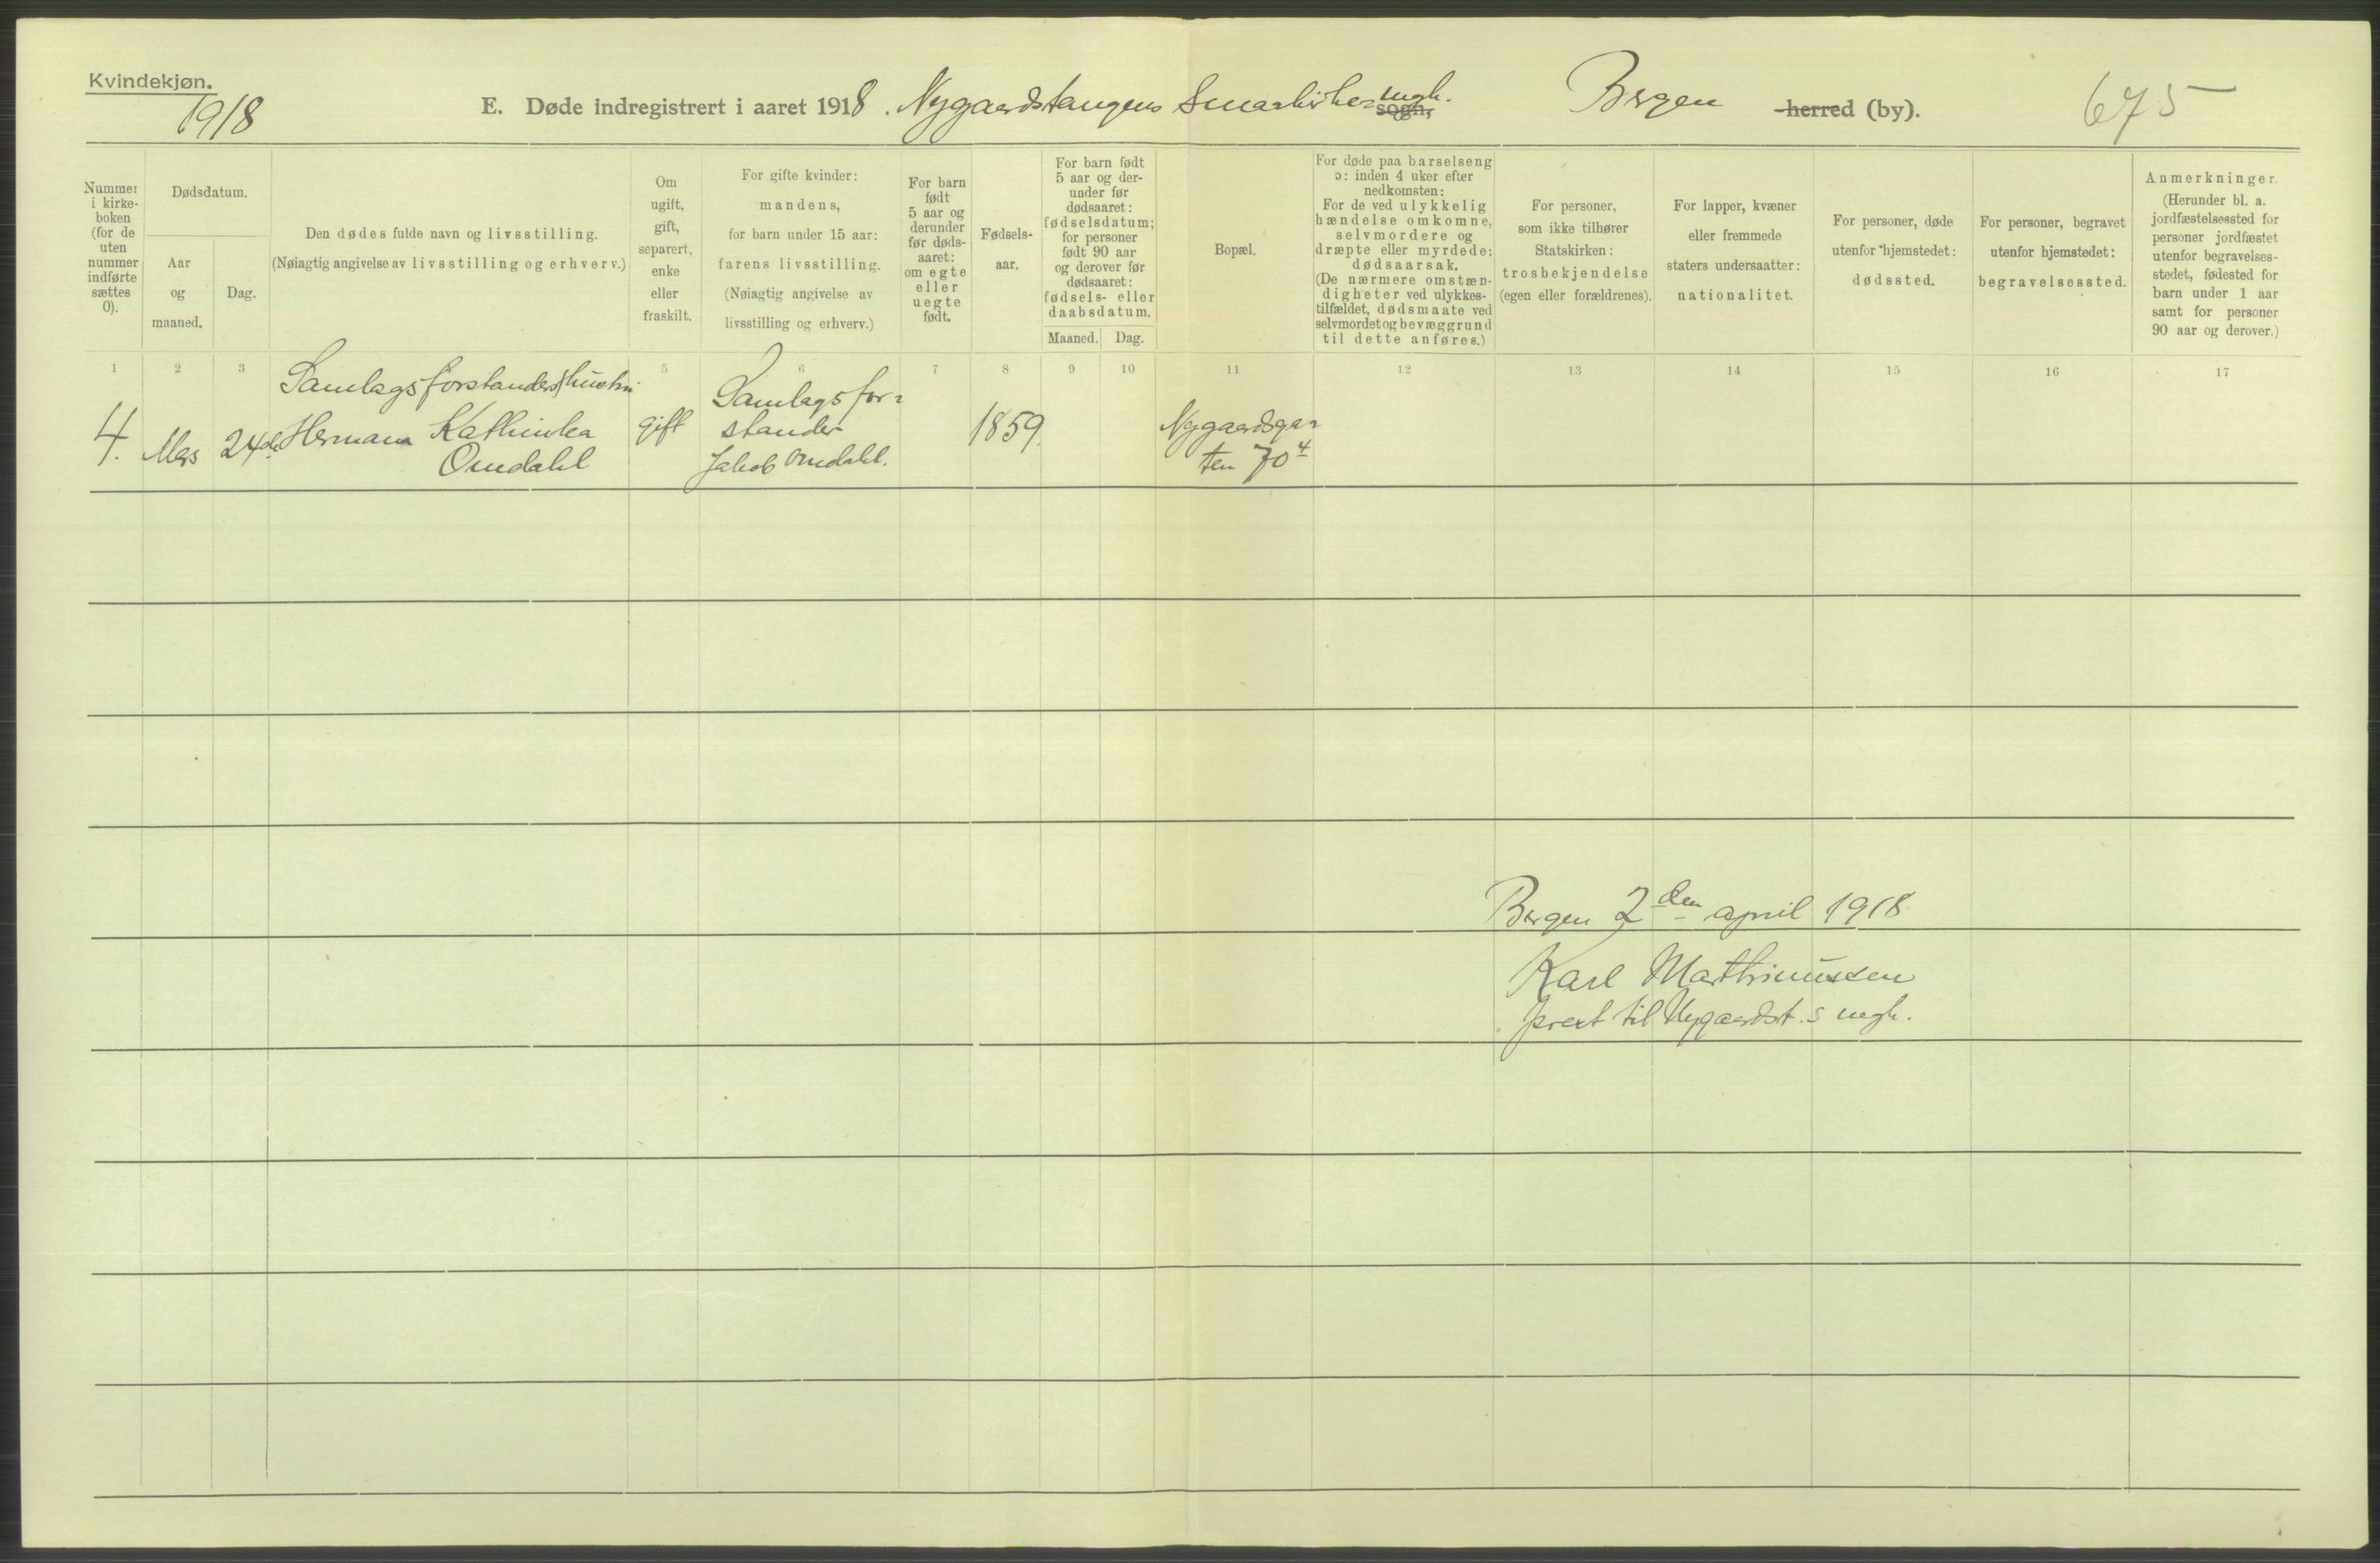 Kvindekjøn.
1918
E. Døde indregistrert i aaret 1918. Nygaardstangens Smaakirke= megh. sogn, Bergen herred (by). 675
Nummer i kirkeboken (for de uten nummer indførte sættes 0).
Dødsdatum.
Aar og maaned.
Dag.
Den dødes fulde navn og livsstilling.
(Nøiagtig angivelse av livsstilling og erhverv.)
Om ugift, gift, separert, enke eller fraskilt.
For gifte kvinder:
mandens,
for barn under 15 aar:
farens livsstilling.
(Nøiagtig angivelse av
livsstilling og erhverv.)
For barn født 5 aar og derunder før dødsaaret: om egte eller uegte født.
Fødselsaar.
For barn født
5 aar og der-
under før
dødsaaret:
fødselsdatum;
for personer
født 90 aar
og derover før
dødsaaret:
fødsels- eller
daabsdatum.
Maaned. Dag.
Bopæl.
For døde paa barselseng
ɔ: inden 4 uker efter
nedkomsten:
For de ved ulykkelig
hændelse omkomne,
selvmordere og
dræpte eller myrdede:
dødsaarsak.
(De nærmere omstæn-
digheter ved ulykkes-
tilfældet, dødsmaate ved
selvmordet og bevæggrund
til dette anføres.)
For personer,
som ikke tilhører
Statskirken:
trosbekjendelse
(egen eller forældrenes).
For lapper, kvæner
eller fremmede
staters undersaatter:
nationalitet.
For personer, døde
utenfor hjemstedet:
dødssted.
For personer, begravet
utenfor hjemstedet:
begravelsessted.
Anmerkninger.
(Herunder bl. a.
jordfæstelsessted for
personer jordfæstet
utenfor begravelses-
stedet, fødested for
barn under 1 aar
samt for personer
90 aar og derover.)
1 2 3 5 6 7 8 9 10 11 12 13 14 15 16 17
4. Mars 24de
Samlagsforstanders hustru
Hermana Kathinka
Omdahl
gift
Samlagsfor=
stander
Jakob Omdahl.
1859.
Nygaardsga=
ten 70 4
Bergen 2den april 1918
Karl Marthinussen
prest til Nygaardst. s megh.